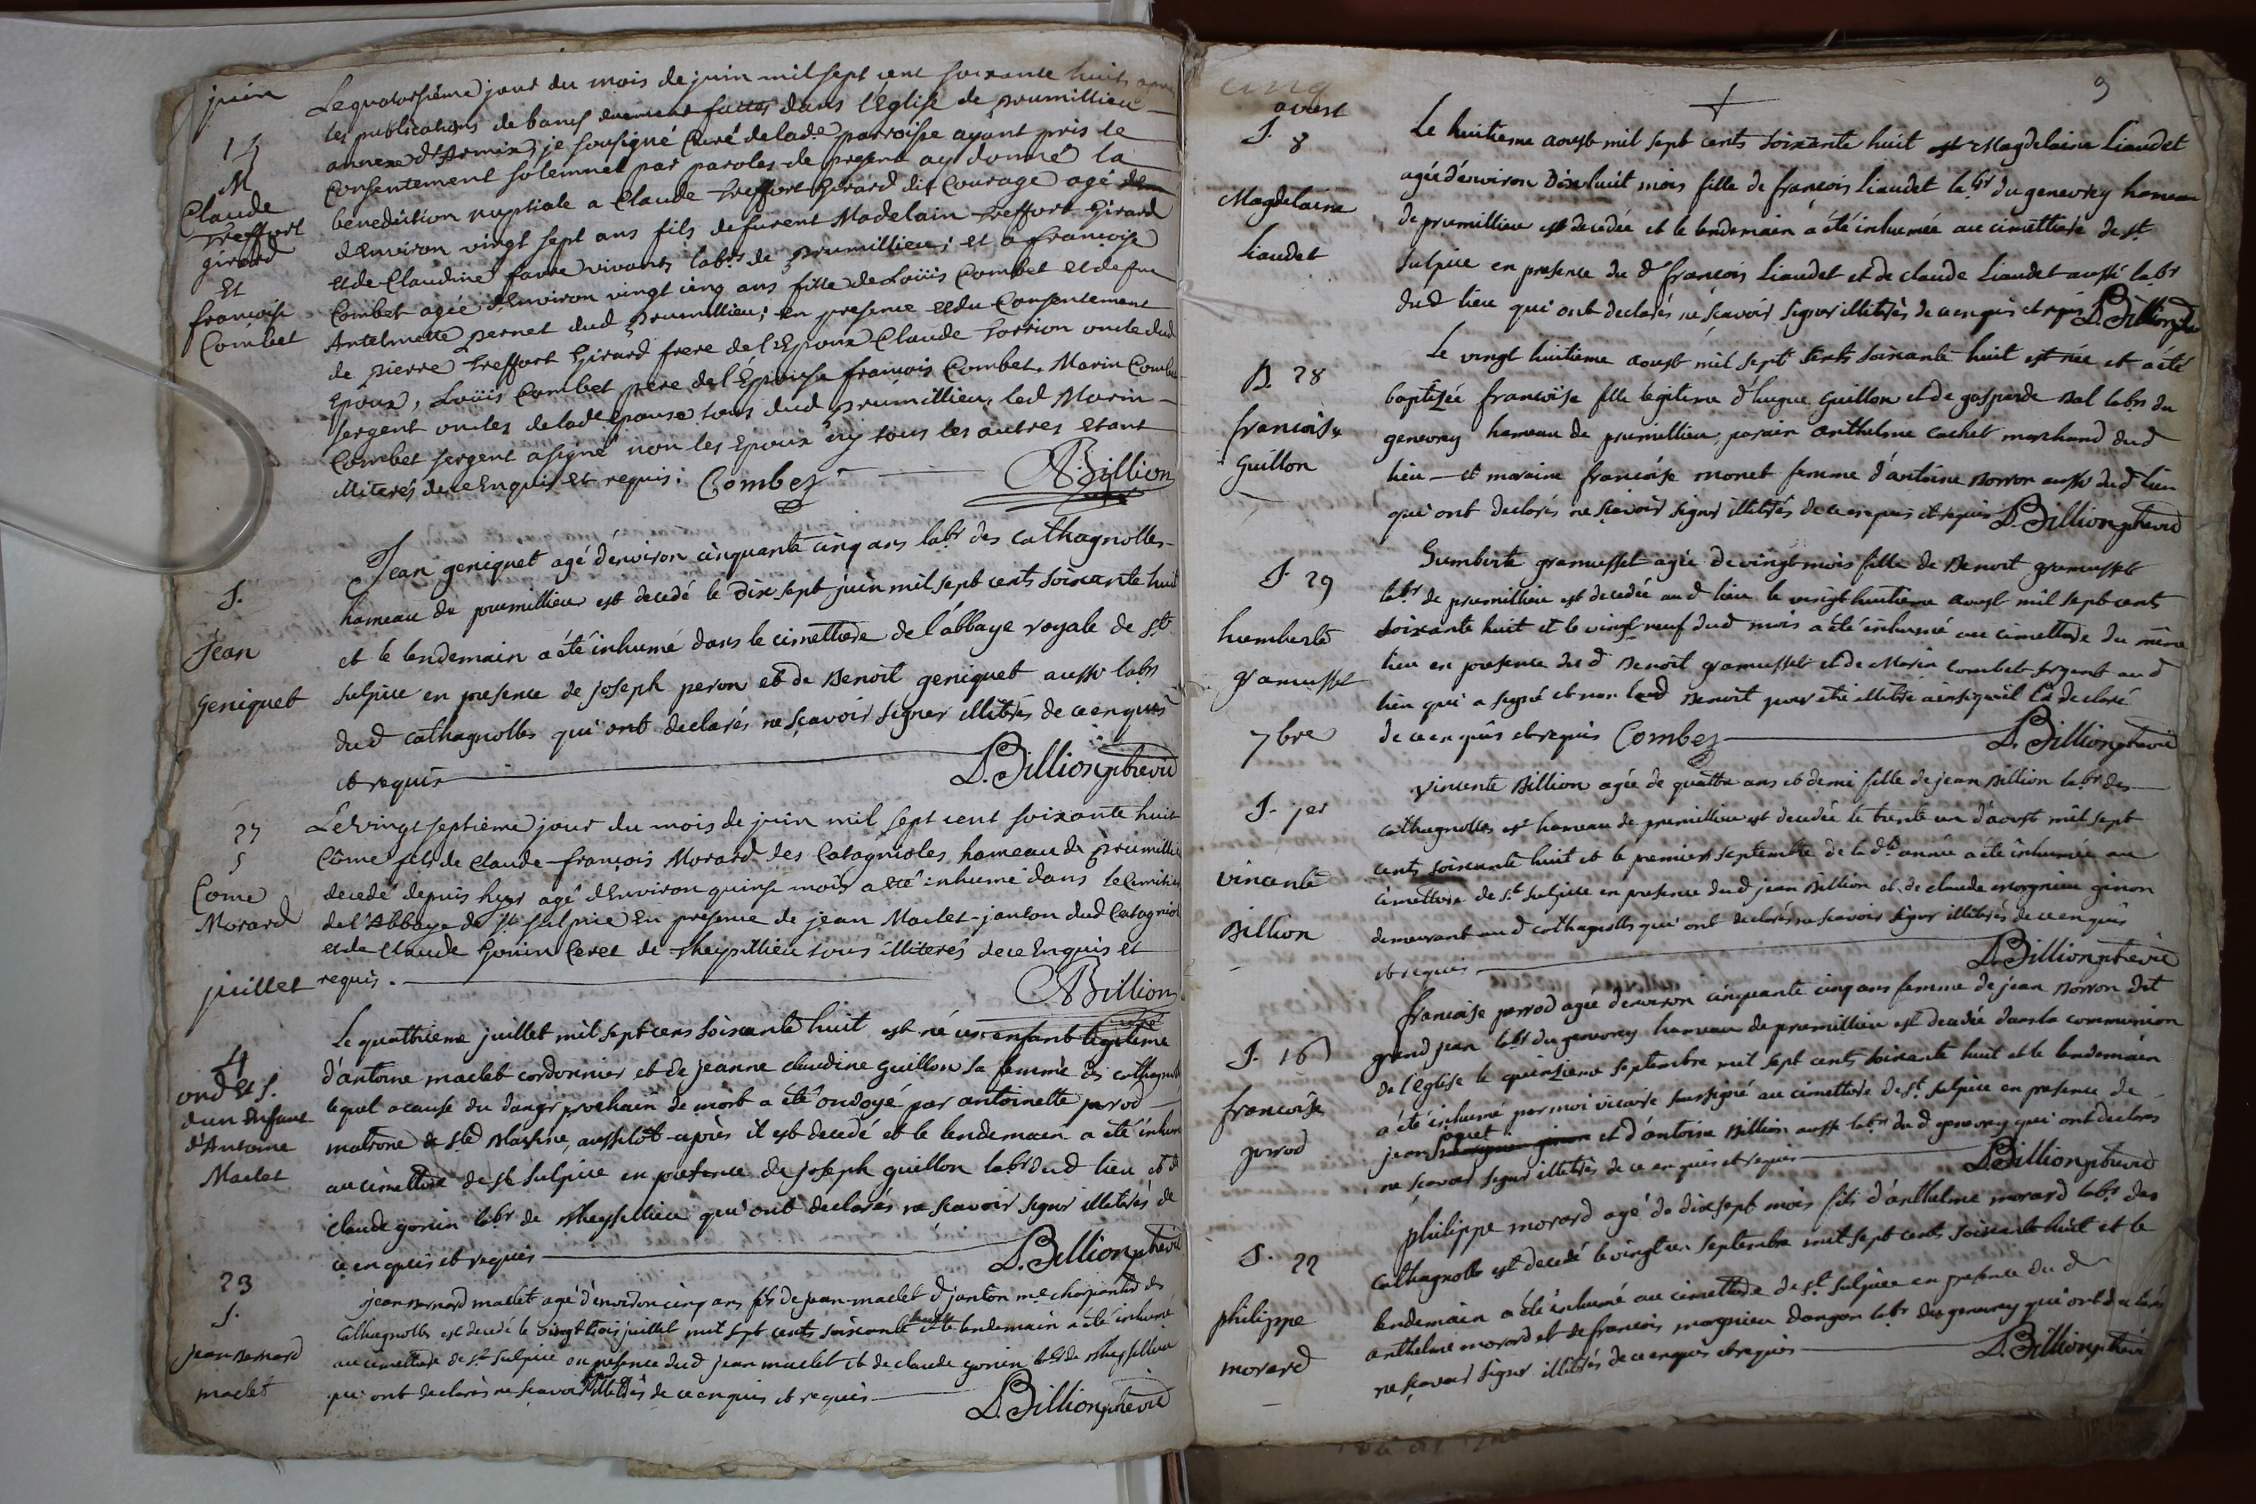 juin
14
M
Claude
treffort
girard
Et
françoise
Combet
Le quatorsiéme jour du mois de juin mil sept cent soixante huit apres
les publications de bancs duement faittes dans l'Eglise de prumillieu
annexe d'Armix, je sousigné Curé de lade parroisse ayant pris le
Consentement solemnel par paroles de present ay donné la
benediction nuptiale a Claude treffort Girard dit Courage agé
d'Environ vingt sept ans fils defunt Madelain treffort Girard
et de Claudine favre vivants labrs de prumillieu; et a françoise
Combet agée d'Environ vingt cinq ans fille de Loüis Combet et de fue
Antelmette pernet dud prumillieu; en presence et du Consentement
de pierre treffort Girard frere de l'Epoux Claude torrion oncle dud
Epoux, Loüis Combet pere de l'Epouse françois Combet, Marin Combet
sergent oncles de lade Epouse tous dud prumillieu, led Marin
Combet sergent a signé non les Epoux ny tous les autres Etant
illiterés de ce Enquis et requis. Combet Billion
S.
Jean
geniquet
Jean geniquet agé d'environ cinquante cinq ans labr des cathagnolles
hameau de prumillieu est decedé le dix sept juin mil sept cents soixante huit
et le lendemain a été inhumé dans le cimettiere de l'abbaye royale de st
sulpice en presence de joseph peron et de Benoit geniquet aussi labrs
dud cathagnolles qui ont declarés ne sçavoir signer illitérés de ce enquis
et requis D. Billion ptrevic
27
S
Come
Morard
Le vingt septiéme jour du mois de juin mil sept cent soixante huit
Côme fils de Claude-françois Morard des Catagnoles hameau de prumillieu
decedé depuis hyer agé d'Environ quinse mois a eté inhumé dans le Cimitiere
de l'Abbaye de St sulpice En présence de jean Maclet-janton dud Catagnioles
et de Claude Gonin Ceret de theysillieu tous illiterés de ce Enquis et
requis. Billion
juillet
4
ond et S.
d'un Enfant
d'Antoine
Maclet
Le quatrieme juillet mil sept cens soixante huit est né un enfant légitime
d'antoine maclet cordonnier et de jeanne claudine guillon sa femme des cathagnolles
lequel a cause du danger prochain de mort a été ondoyé par antoinette perrod
matrone de ste Blasine, aussitôt après il est decedé et le lendemain a été inhumé
au cimettiere de st sulpice en presence de joseph guillon labr dud lieu et de
claude gonin labr de theysellieu qui ont declarés ne scavoir signer illetérés de
ce enquis et requis D. Billion ptrevic
23
S.
jean Bernard
maclet
jean Bernard maclet agé d'environ cinq ans fils de jean maclet d janton me charpentier des
cathagnolles est decedé le vingt trois juillet mil sept cents soixante huit et le lendemain a été inhumé
au cimettiere de st sulpice en presence dud jean maclet et de claude gonin labr de theysellieu
qui ont declarés ne scavoir signer illitérés de ce enquis et requis D. Billion ptrevic
cinq
9
aoust
S. 8
Magdelaine
Liaudet
Le huitieme aoust mil sept cents soixante huit est Magdelaine Liaudet
agée d'environ dix huit mois fille de françois Liaudet labr du genevrey hameau
de prumillieu est decedée et le lendemain a été inhumée au cimettiere de st
sulpice en presence du d françois Liaudet et de claude Liaudet aussi labr
dud lieu qui ont declarés ne sçavoir signer illitérés de ce enquis et requis D. Billion
B. 28
francoise
guillon
Le vingt huitieme aoust mil sept cents soixante huit est née et a été
baptizée francoise fille legitime d'hugue guillon et de gasparde Bal labrs du
genevrey hameau de prumillieu, parain anthelme cachet marchand dud
lieu et maraine francoise monet femme d'antoine Borron aussi dud lieu
qui ont declarés ne sçavoir signer illitérés de ce enquis et requis D. Billion ptrevic
S. 29
humberte
gramusset
Humberte gramusset agée de vingt mois fille de Benoit gramusset
labr de prumillieu est decedée aud lieu le vingt huitieme aoust mil sept cents
soixante huit et le vingt neuf dud mois a été inhumé au cimettiere du même
lieu en presence du d Benoit gramusset et de Marin Combet sergent aud
lieu qui a signé et non led Benoit pour etre illitéré ainsi qu'il l'a declaré
de ce enquis et requis Combet D. Billion ptrevic
7bre
S. 1er
vincente
Billion
vincente Billion agée de quattre ans et demi fille de jean Billion labr des
cathagnolles hameau de prumillieu est decedée le trente un d'aoust mil sept
cents soixante huit et le premier septembre de lade année a été inhumée au
cimettiere de st sulpice en presence dud jean Billion et de claude morgnieu ginon
demeurant aud cathagnolles qui ont declarés ne scavoir signer illitérés de ce enquis
et requis D. Billion ptrevic
S. 16
francoise
perrod
francoise perrod agée d'environ cinquante cinq ans femme de jean Borron dit
grand jean labr du genevrey hameau de prumillieu est decedée dans la communion
de l'église le quinzieme septembre mil sept cents soixante huit et le lendemain
a été inhumé par moi vicaire soussigné au cimettiere de st sulpice en presence de
jean et d'antoine Billion aussi labr dud genevrey qui ont declarés
ne sçavoir signer illitérés de ce enquis et requis D. Billion ptrevic
S. 22
philippe
morard
philippe morard agé de dix sept mois fils d'anthelme morard labr des
cathagnolles est decedé le vingt un septembre mil sept cents soixante huit et le
lendemain a été inhumé au cimettiere de st sulpice en presence du d
anthelme morard et de francois morgnieu dangon labr du genevrey qui ont declarés
ne sçavoir signer illitérés de ce enquis et requis D. Billion ptrevic